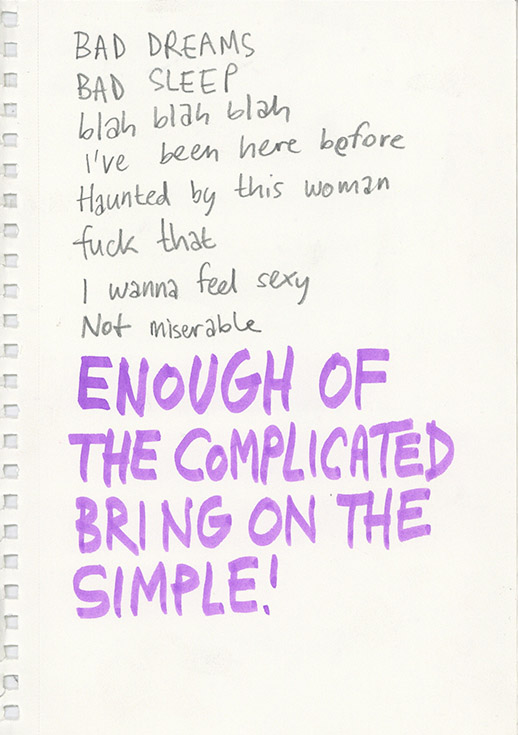 BAD DREAMS
BAD SLEEP
blah blah blah
I've been here before
Haunted by this woman
fuck that
I wanna feel sexy
Not miserable
ENOUGH OF
THE COMPLICATED
BRING ON THE
SIMPLE!